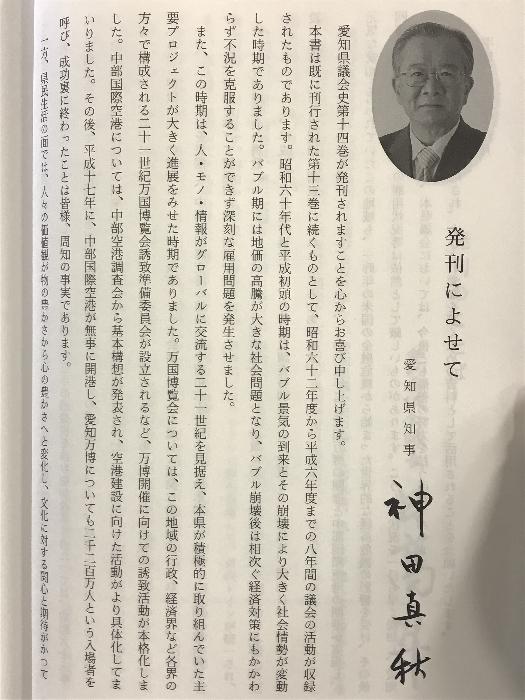 発刊によせて
愛知県知事
神田真秋
愛知県議会史第十四巻が発刊されますことを心からお喜び申し上げます。
本書は既に刊行された第十三巻に続くものとして、昭和六十二年度から平成六年度までの八年間の議会の活動が収録
されたものであります。昭和六十年代と平成初頭の時期は、バブル景気の到来とその崩壊により大きく社会情勢が変動
した時期でありました。バブル期には地価の高騰が大きな社会問題となり、バブル崩壊後は相次ぐ経済対策にもかかわ
らず不況を克服することができず深刻な雇用問題を発生させました。
また、この時期は、人・モノ・情報がグローバルに交流する二十一世紀を見据え、本県が積極的に取り組んでいた主
要プロジェクトが大きく進展をみせた時期でありました。万国博覧会については、この地域の行政、経済界など各界の
方々で構成される二十一世紀万国博覧会誘致準備委員会が設立されるなど、万博開催に向けての誘致活動が本格化しま
した。中部国際空港については、中部空港調査会から基本構想が発表され、空港建設に向けた活動がより具体化してま
いりました。その後、平成十七年に、中部国際空港が無事に開港し、愛知万博についても二千二百万人という入場者を
呼び、成功裏に終わったことは皆様、周知の事実であります。
一方、県民生活の面では、人々の価値観が物の豊かさから心の豊かさへと変化し、文化に対する関心と期待がかつて